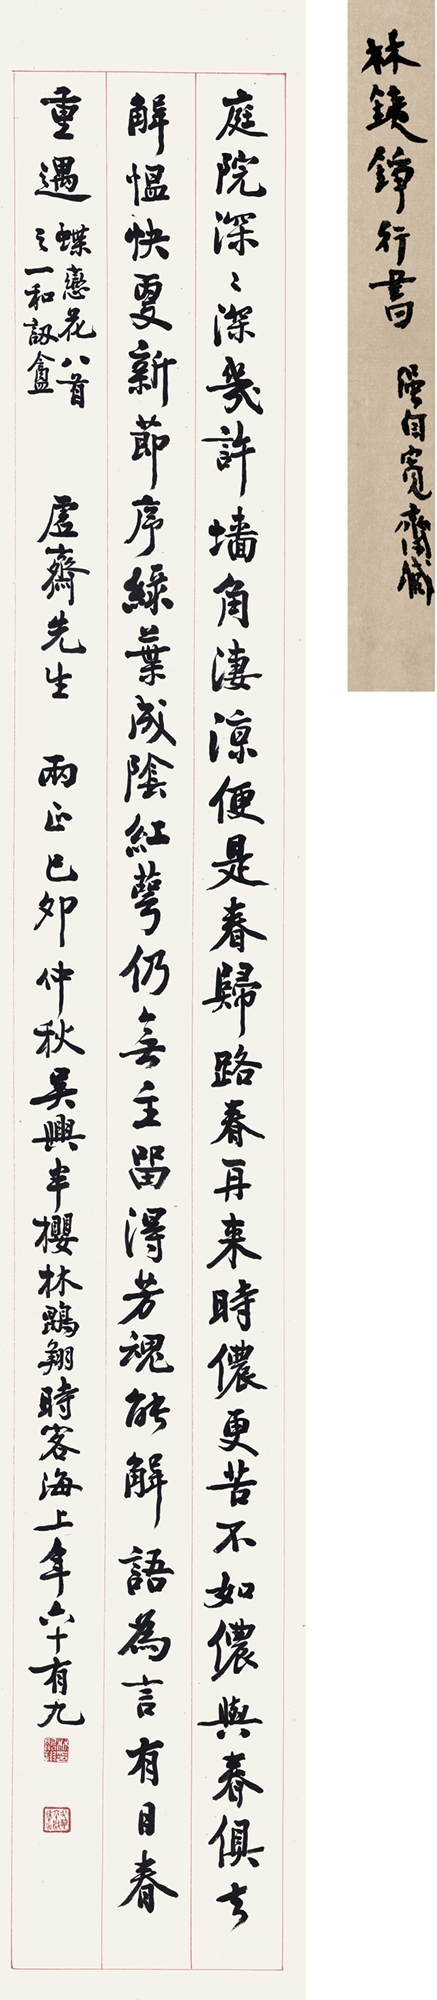 庭院深〻深幾許墻角淒涼便是春歸路春再来時儂更苦不如儂與春俱去
解愠快更新節序綠葉成陰紅萼仍無主留得芳魂能解語為言有日春
重遇
蝶戀花八首
之一和訒盦
虛齋先生 兩正己卯仲秋吳興半櫻林鵾翔時客海上年六十有九
林鐵錚行書
自寬齋藏